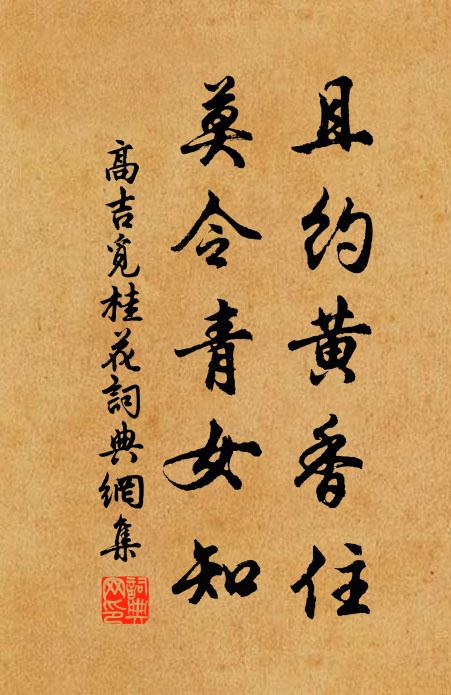 且約黄香住
莫令青女知
高吉覓桂花詞典網集
詞典
网印